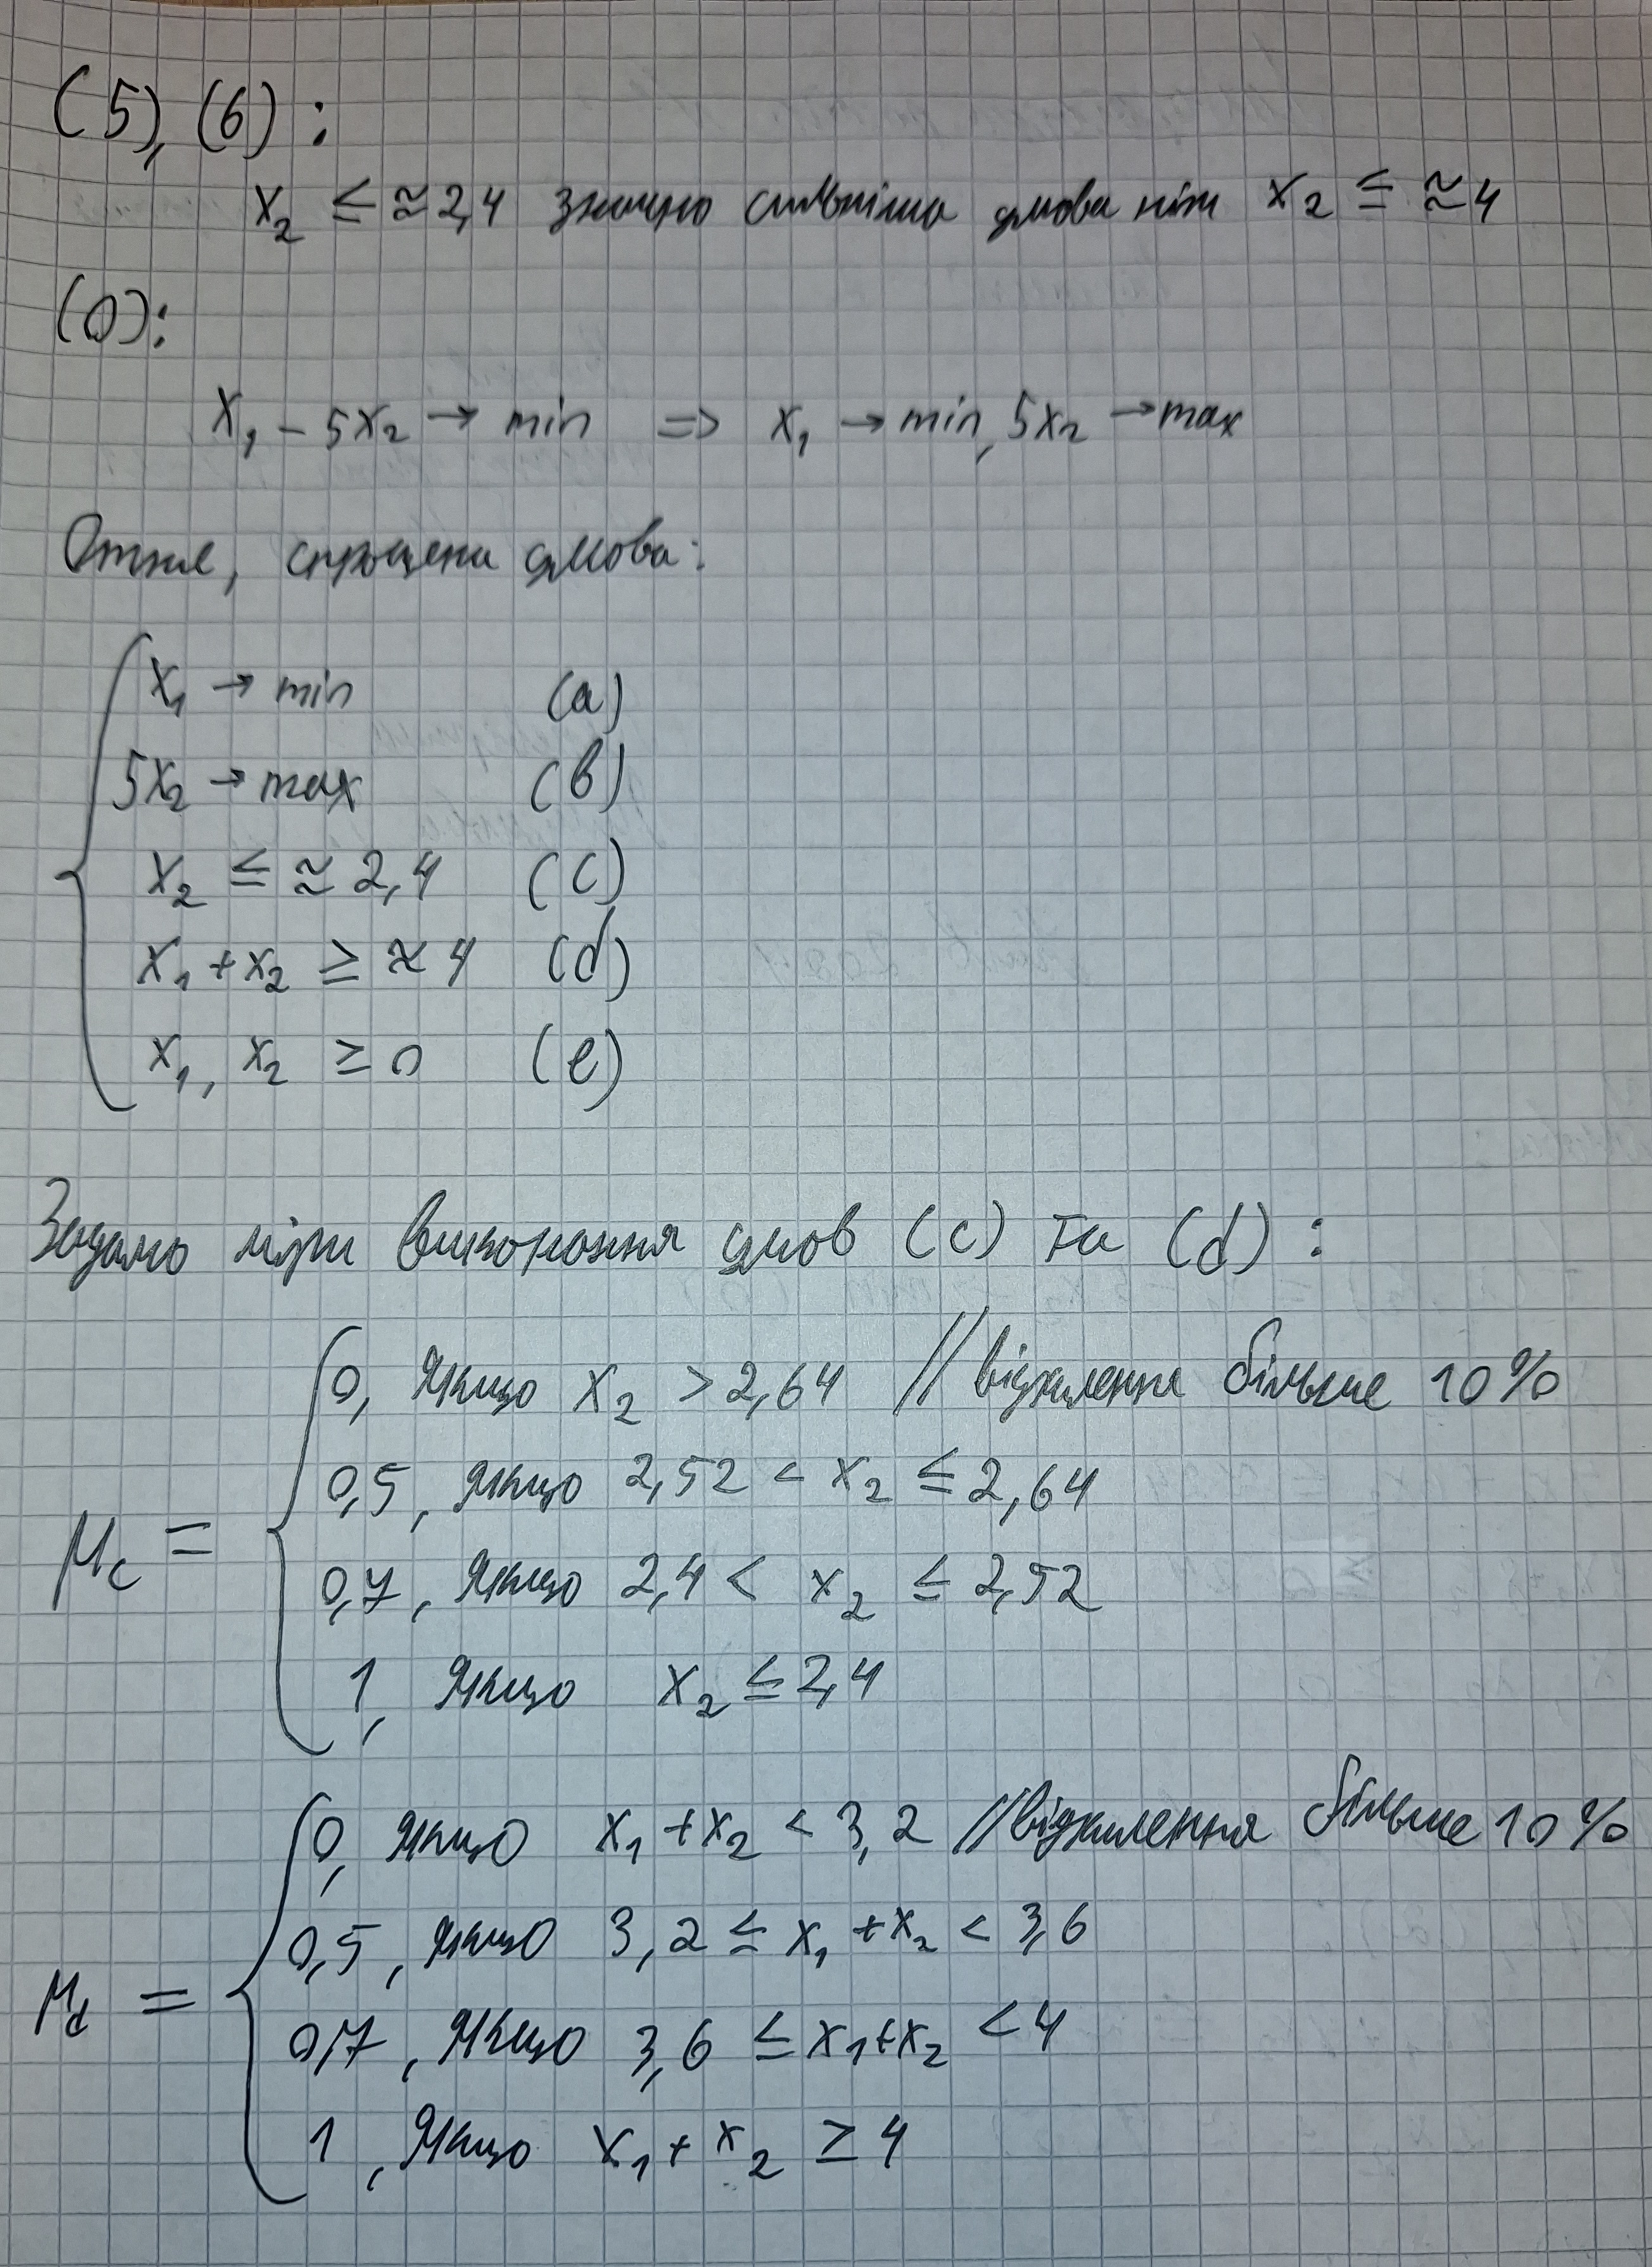 (5), (6):
x₂ ≤ ≈ 2,4 значно сильніша умова ніж x₂ ≤ ≈ 4
(0):
x₁ - 5x₂ → min => x₁ → min, 5x₂ → max
Отже, спрощена умова:
x₁ → min (a)
5x₂ → max (b)
x₂ ≤ ≈ 2,4 (c)
x₁ + x₂ ≥ ≈ 4 (d)
x₁, x₂ ≥ 0 (e)
Задамо міри виконання умов (c) та (d):
0, якщо x₂ > 2,64 // відхилення більше 10%
0,5, якщо 2,52 < x₂ ≤ 2,64
μc =
0,7, якщо 2,4 < x₂ ≤ 2,52
1, якщо x₂ ≤ 2,4
0, якщо x₁ + x₂ < 3,2 // відхилення більше 10%
0,5, якщо 3,2 ≤ x₁ + x₂ < 3,6
μd =
0,7, якщо 3,6 ≤ x₁ + x₂ < 4
1, якщо x₁ + x₂ ≥ 4